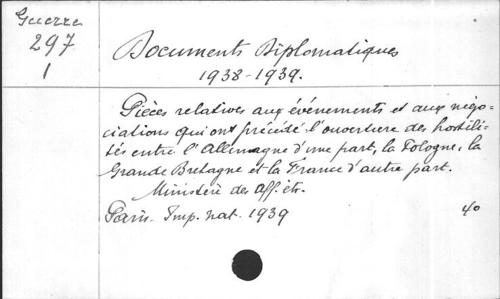 Guerre
297
1
Documents Diplomatiques
1938-1939.
Pièces relatives aux événements et aux négo=
ciations qui ont précédé l'ouverture des hostili=
tés entre l'Allemagne d'une part, la Pologne, la
Grande Bretagne et la France d'autre part.
Ministère des Aff. étr.
Paris. Imp. nat. 1939
40